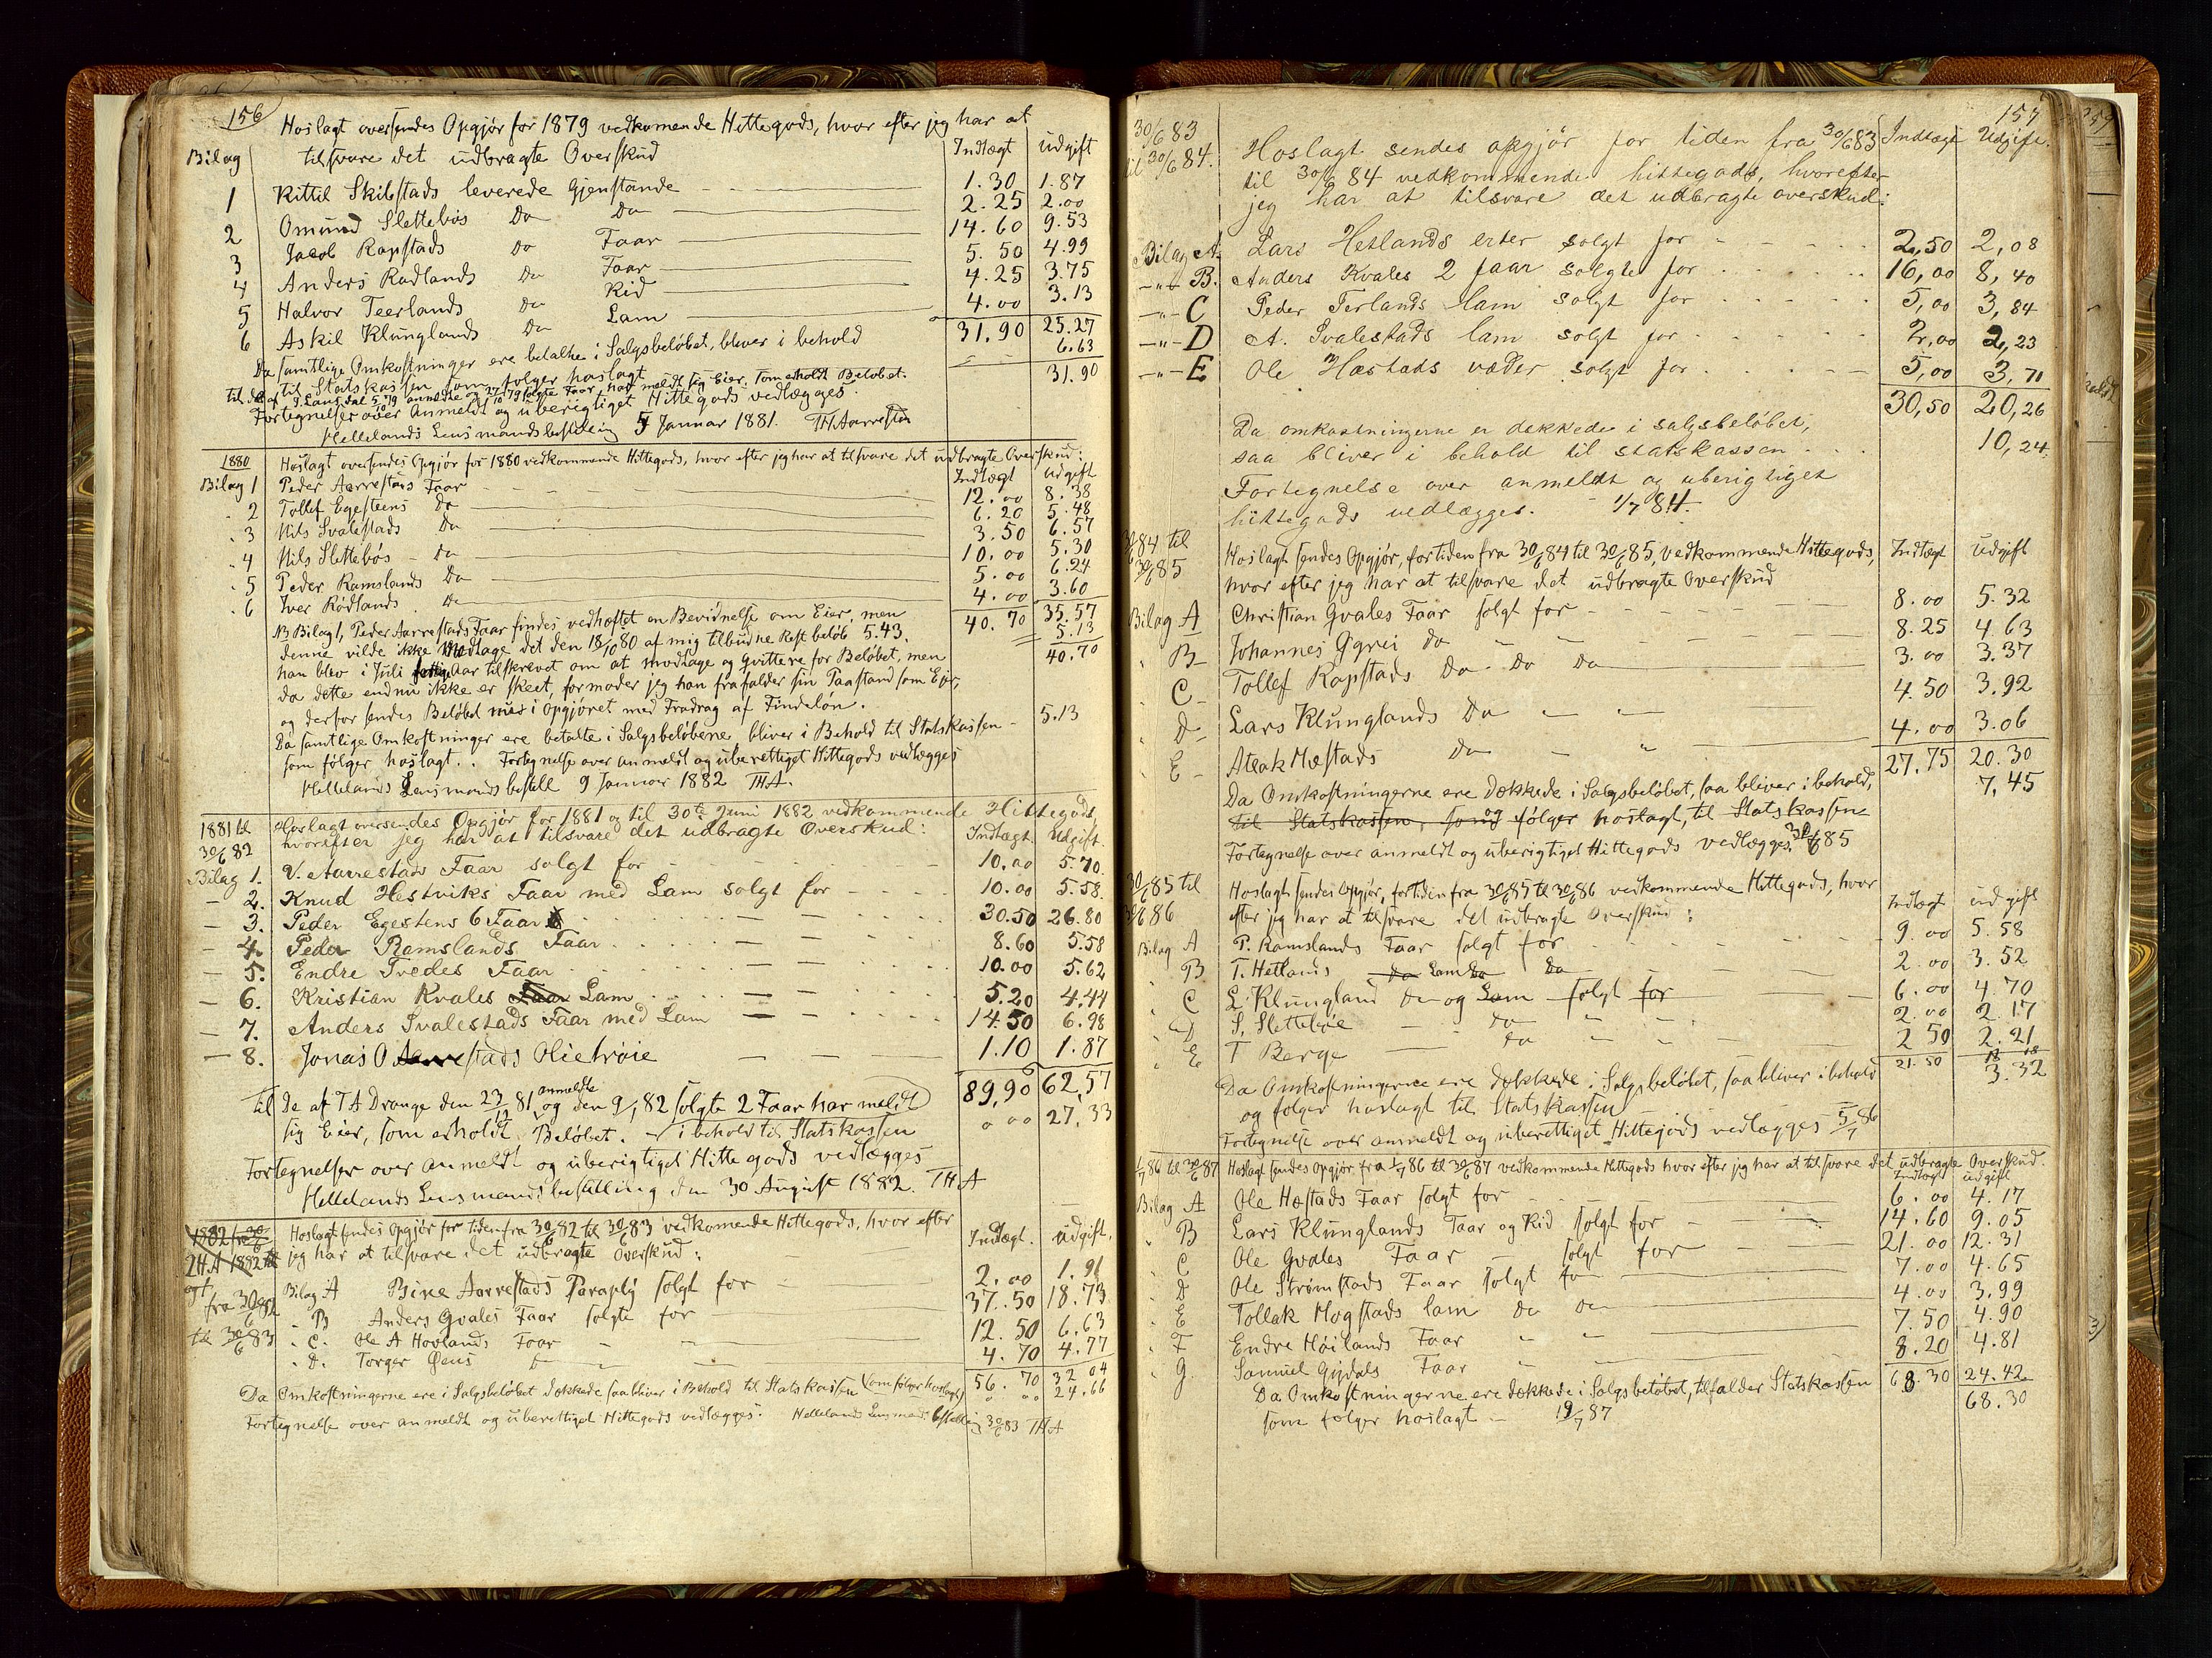 156
Hoslagt oversendes Opgjør for 1879 vedkomende Hittegods, hvor efter jeg har at
Bilag tilsvare det udbragte Overskud Indtægt udgift
1 Kittil Skibstads leverede Gjenstande 1.30 1.87
2 Omund Slettebøs Do Do 2.25 2.00
3 Jacob Rapstads Do Faar 14.60 9.53
4 Anders Radlands Do Faar 5.50 4.99
5 Halvor Teerlands Do Kid 4.25 3.75
6 Askil Klunglands Do Lam 4.00 3.13
31.90 25.27
Da samtlige Omkostninger ere betalte i Salgsbeløbet, bliver i behold 6.63
til Statskassen som følger hoslagt 31.90
solgte Faar, har meldt sig Eier, som erholdt Beløbet.
Fortegnelser over Anmeldt og uberigtiget Hittegods vedlægges.
Hellelands Lensmandsbestilling 5 Januar 1881. THAarrestad
1880 Hoslagt oversendes Opgjør for 1880 vedkommende Hittegods, hvor efter jeg har at tilsvare det udbragte Overskud:
Indtægt udgift
Bilag 1 Peder Aarrestads Faar 12.00 8.38
" 2 Tollef Egesteens Do 6.20 5.48
" 3 Nils Svalestads Do 3.50 6.57
" 4 Nils Slettebøs Do 10.00 5.30
" 5 Peder Ramslands Do 5.00 6.24
" 6 Iver Rødlands Do 4.00 3.60
40.70 35.57
NB Bilag 1, Peder Aarrestads Faar findes vedhæftet en Bevidnelse om Eier, men 5.13
denne vilde ikke modtage det den 18/10 80 af mig tilbudne Rest beløb 5.43. 40.70
han blev i Juli Aar tilskrevet om at modtage og Qvittere for Beløbet, men
da dette endnu ikke er skeet, formoder jeg han frafalder sin Paastand som Eier,
og derfor sendes Beløbet i Opgjøret med Fradrag af Findeløn.
Da samtlige Omkostninger ere betalte i Salgsbeløbene bliver i Behold til Statskassen - 5.13
som følger hoslagt. Fortegnelse over anmeldt og uberettiget Hittegods vedlægges
Hellelands Lensmandsbestill 9 Januar 1882 THA.
1881 til 30/6 82 Hoslagt oversendes Opgjør for 1881 og til 30te Juni 1882 vedkommende Hittegods,
hvorefter jeg har at tilsvare det udbragte Overskud: Indtægt. Udgift.
Bilag 1. V. Aarrestads Faar solgt for 10.00 5.70
- 2. Knud Hestviks Faar med Lam solgt for 10.00 5.58
- 3. Peder Egestens 6 Faar 30.50 26.80
- 4. Peder Ramslands Faar 8.60 5.58
- 5. Endre Tvedes Faar 10.00 5.62
- 6. Kristian Kvales Faar Lam 5.20 4.44
- 7. Anders Svalestads Faar med Lam 14.50 6.98
- 8. Jonas O stads Olietrøie 1.10 1.87
89,90 62,57
Til De af TA Drange den 23/12 81 anmeldte og den 9/1 82 solgte 2 Faar har meldt
sig Eier, som erholdt Beløbet. - i behold til Statskassen " 00 27,33
Fortegnelser over anmeldt og uberigtiget Hittegods vedlægges
Hellelands Lensmandsbestilling den 30 August 1882. THA
Hoslagt sendes Opgjør for tiden fra 30/6 82 til 30/6 83 vedkomende Hittegods, hvor efter
jeg har at tilsvare det udbragte Overskud: Indtægt. udgift.
fra 30/6 82 til 30/6 83
Bilag A Bine Aarrestads Paraply solgt for 2.00 1.91
" B Anders Gvales Faar solgte for 37.50 18.73
" C. Ole A Hovlands Faar 12.50 6.63
" D. Torger 4.70 4.77
56.70 32 04
Da Omkostningerne ere i Salgsbeløbet dækkede saa bliver i Behold til Statskassen (som følger hoslagt) 24.66
Fortegnelse over anmeldt og uberettiget Hittegods vedlægges. Hellelands Lensmandsbestilling 30/6 83 THA
157
30/6 83 til 30/6 84.
Hoslagt sendes opgjør for tiden fra 30/6 83 Indtægt Udgift.
til 30/6 84 vedkommende hittegods, hvorefter
jeg har at tilsvare det udbragte overskud:
Bilag A. Lars Hetlands erter solgt for 2,50 2,08
-"- B. Anders Kvales 2 faar solgte for 16,00 8,40
-"- C Peder Terlands lam solgt for 5,00 3,84
-"- D A. Svalestads lam solgt for 2,00 2,23
-"- E Ole Hæstads væder solgt for 5,00 3,71
30,50 20,26
Da omkostningerne er dækkede i salgsbeløbet,
saa bliver i behold til statskassen 10,24.
Fortegnelse over anmeldt og uberigtiget
hittegods vedlægges. 1/7 84.
30/6 84 til 30/6 85
Hoslagt sendes Opgjør, for tiden fra 30/6 84 til 30/6 85, vedkommende Hittegods, Indtægt udgift
hvor efter jeg har at tilsvare det udbragte Overskud
Bilag A Christian Gvales Faar solgt for 8.00 5.32
" B Johannes Ggrei do 8.25 4.63
" C Tollef Rapstads Do Do Do 3.00 3.37
" D Lars Klunglands Do 4.50 3.92
" E Atlak Hæstads Do 4.00 3.06
27.75 20.30
Da Omkostningerne ere dækkede i Salgsbeløbet, saa bliver i behold, 7,45
til Statskassen, som følger hoslagt, til Statskassen
Fortegnelse over anmeldt og uberigtiget Hittegods vedlægges. 30/6 85
30/6 85 til 30/6 86
Hoslagt sendes Opgjør, for tiden fra 30/6 85 til 30/6 86 vedkommende Hittegods, hvor
efter jeg har at tilsvare det udbragte Overskud: Indtægt udgift
Bilag A P. Ramslands Faar solgt for 9.00 5.58
" B T. Hetlands Do Lam Do Do 2.00 3.52
" C L. Klungland Do og Lam solgt for 6.00 4.70
" D S. Slettebøe Do 2.00 2.17
" E T Berge Do 2 50 2.21
21.50 18 18
Da Omkostningerne ere dækkede i Salgsbeløbet, saa bliver i behold 3.32
og følger hoslagt til Statskassen
Fortegnelse over anmeldt og uberettiget Hittegods vedlægges 5/7 86
1/7 86 til 30/6 87 Hoslagt sendes Opgjør fra 1/7 86 til 30/6 87 vedkommende Hittegods hvor efter jeg har at tilsvare det udbragte Overskud.
Indtægt udgift
Bilag A Ole Hæstads Faar solgt for 6.00 4.17
" B Lars Klunglands Faar og Kid solgt for 14.60 9.05
" C Ole Gvales Faar solgt for 21.00 12.31
" D Ole Strømstads Faar solgt for 7.00 4.65
" E Tollak Mogstads lam Do Do 4.00 3.99
" F Endre Høilands Faar 7.50 4.90
" G. Samuel Gjydals Faar 8.20 4.81
68.30 24.42
Da Omkostningerne ere dækkede i Salgsbeløbet, tilfalder Statskassen 68.30
som følger hoslagt - 19/7 87